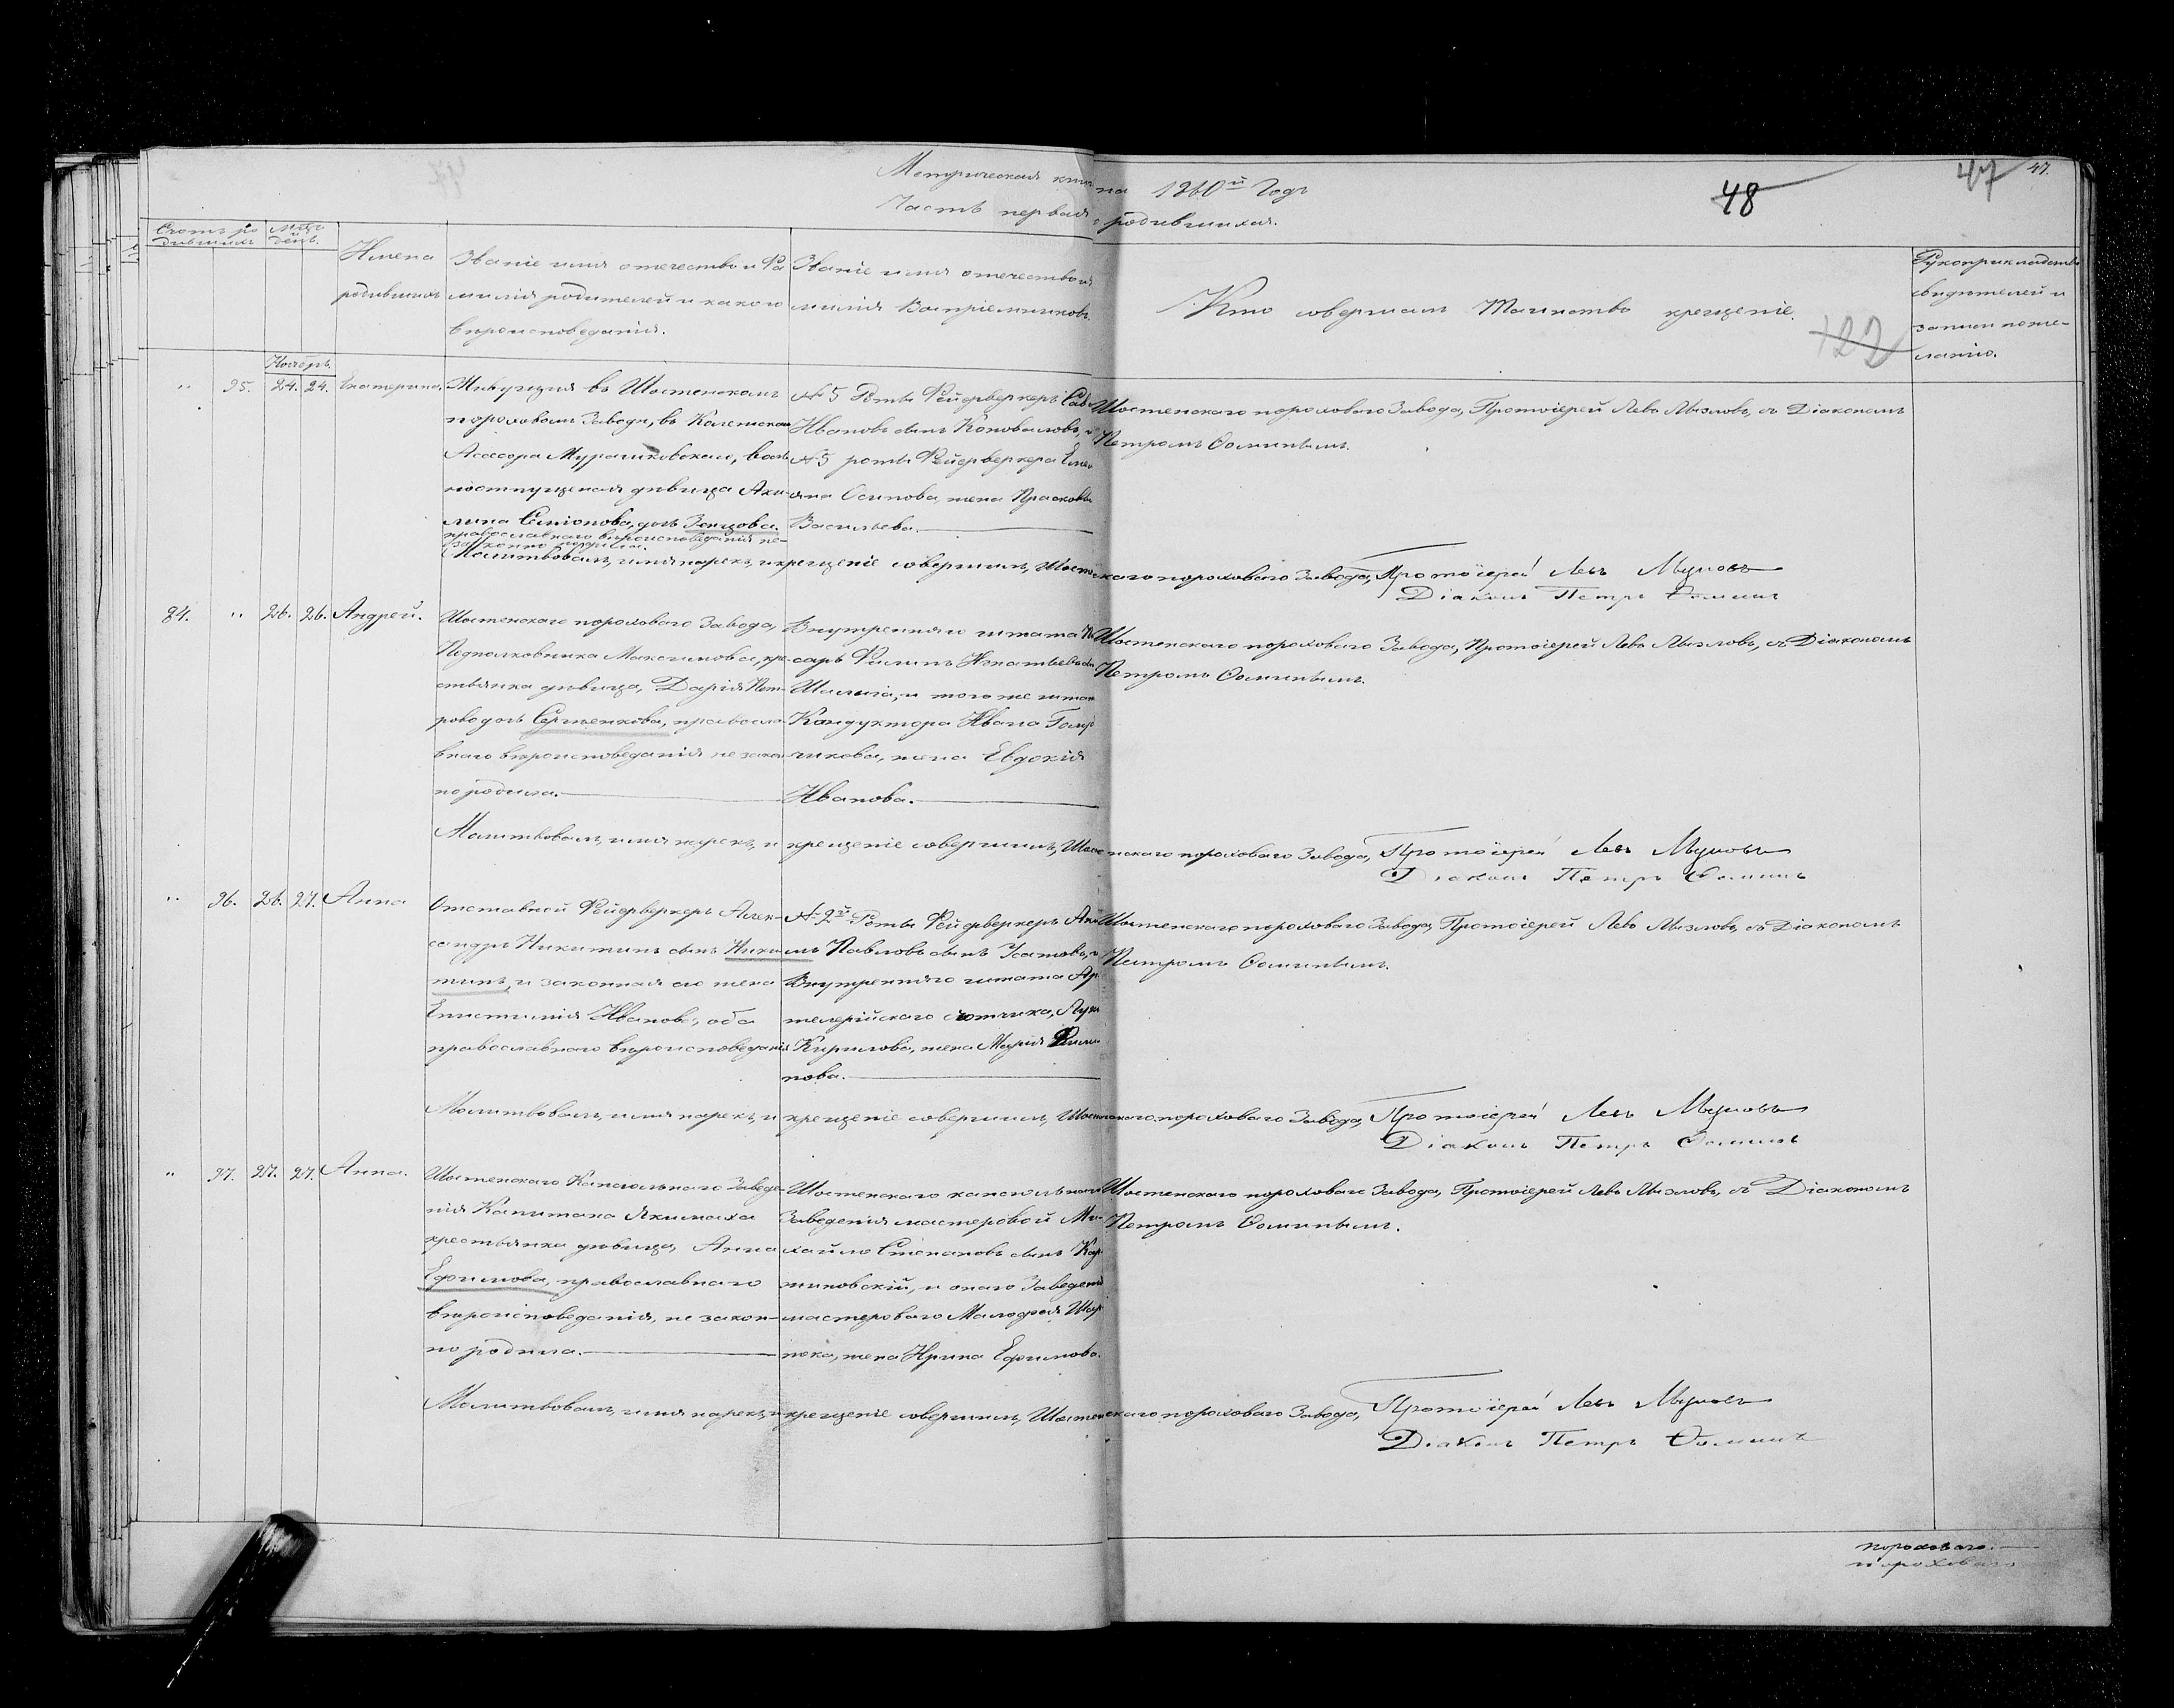 Метрическая книга на 1860й Годъ
Часть первая о родившихся.
48
47
47.
Счетъ родившихъ
Мѣсяцъ день.
Имена
родившихъ
Званіе имя отечество и Фа
милія родителей и какого
вѣроисповеданія.
Званіе имя отечество и
милія Воспріемниковъ.
Кто совершалъ Таинство крещеніе.
122
Рукоприкладство
свидѣтелей и
записи поже-
ланію.
Ноябрь.
" 95. 24. 24. Екатерина.
Живущая въ Шостенскомъ
пороховомъ Заводѣ, въ Колежскаго
Асессора Мурашковскаго, воль
ноотпущеная дѣвица Аки-
лина Симіонова, дочь Зенцова.
православнаго вѣроисповеданія не-
законно родила.
№ 5 Роты Фейерверкеръ Сав
Ивановъ сынъ Коноваловъ, и
№ 5 роты Фейерверкера Емел
яна Осипова, жена Прасковья
Васильева.
Шостенскаго пороховаго Завода, Протоіерей Левъ Мызловъ, съ Діакономъ
Петромъ Ѳоминымъ.
Молитвовалъ, имя нарекъ, и крещеніе совершилъ, Шостенскаго пороховаго Завода, Протоіерей Левъ Мызловъ
Діаконъ Петръ Ѳоминъ
84. " 26. 26. Андрей.
Шостенскаго пороховаго Завода,
Подполковника Максимова, кре-
стьянка дѣвица, Дарія Пет-
рова дочь Сергѣенкова, правосла-
внаго вѣроисповеданія не зако-
но родила.
Внутренняго штата Пи
сарь Филипъ Игнатьевъ сын
Шилнга, и того же штата
Кондуктора Ивана Голуб
чикова, жена Евдокія
Иванова.
Шостенскаго пороховаго Завода, Протоіерей Левъ Мызловъ, съ Діакономъ
Петромъ Ѳоминымъ.
Молитвовалъ, имя нарекъ, и крещеніе совершилъ, Шостенскаго пороховаго Завода, Протоіерей Левъ Мызловъ
Діаконъ Петръ Ѳоминъ
" 96. 26. 27. Анна
Отставной Фейерверкеръ Алек-
сандръ Никитинъ сынъ Ники-
тинъ, и законная его жена
Епистимія Иванова, оба
православнаго вѣроисповеданія
№ 2й Роты Фейерверкеръ Аки
мъ Павловъ сынъ Усатовъ, и
Внутренняго штата Ар
тилерійскаго счотчика, Луки
Кирилова, жена Марія Фили
пова.
Шостенскаго пороховаго Завода, Протоіерей Левъ Мызловъ, съ Діакономъ
Петромъ Ѳоминымъ.
Молитвовалъ, имя нарекъ, и крещеніе совершилъ, Шостенскаго пороховаго Завода, Протоіерей Левъ Мызловъ
Діаконъ Петръ Ѳоминъ
" 97. 27. 27. Анна.
Шостенскаго Капсюльнаго Заведе-
нія Капитана Якимаха
крестьянка дѣвица, Анна
Ефимова, православнаго
вѣроисповеданія, не закон-
но родила.
Шостенскаго капсюльнаго
Заведенія мастеровой Ми-
хаилъ Степановъ сынъ Кар
пиковскій, и онаго Заведенія
мастероваго Малофея Шар
пека, жена Ирина Ефимова.
Шостенскаго пороховаго Завода, Протоіерей Левъ Мызловъ, съ Діакономъ
Петромъ Ѳоминымъ.
Молитвовалъ, имя нарекъ, и крещеніе совершилъ, Шостенскаго пороховаго Завода, Протоіерей Левъ Мызловъ
Діаконъ Петръ Ѳоминъ
пороховаго.
пороховаго